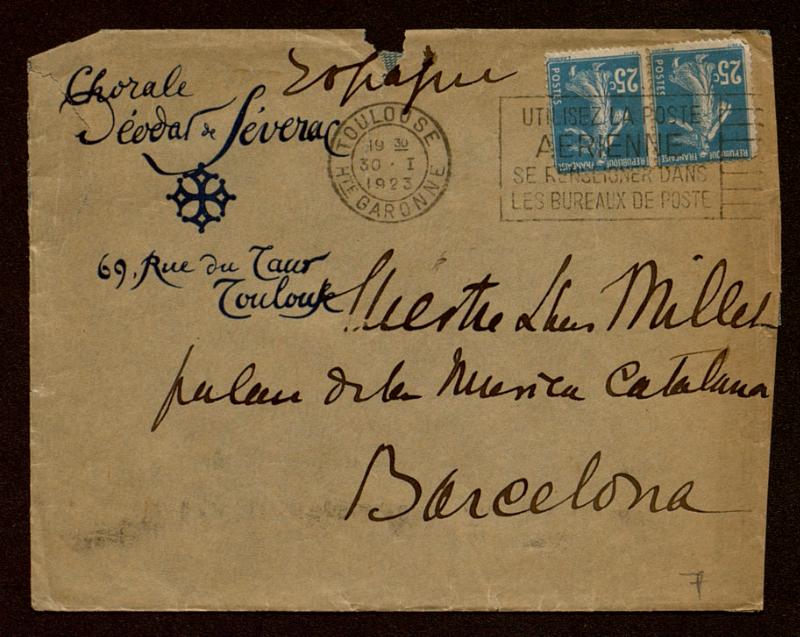 Chorale
Déodat de Séverac
69, Rue du Taur
Toulouse
Espagne
TOULOUSE
19 30
30 · I
1923
HTE GARONNE
25c
POSTES
REPUBLIQUE FRANÇAISE
25c
POSTES
REPUBLIQUE FRANÇAISE
UTILISEZ LA POSTE
AERIENNE
SE RENSEIGNER DANS
LES BUREAUX DE POSTE
Mestre Lluis Millet
palau de la Musica Catalana
Barcelona
7